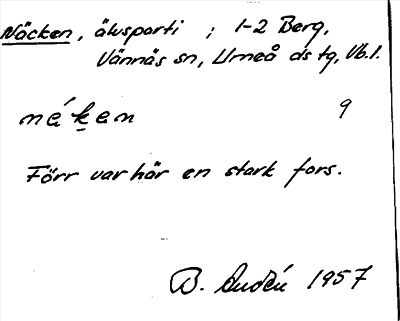 Näcken, älvsparti ; 1-2 Berg,
Vännäs sn, Umeå ds tg, Vb.l.
nɛ́ḱen 9
Förr var här en stark fors.
B. 1957